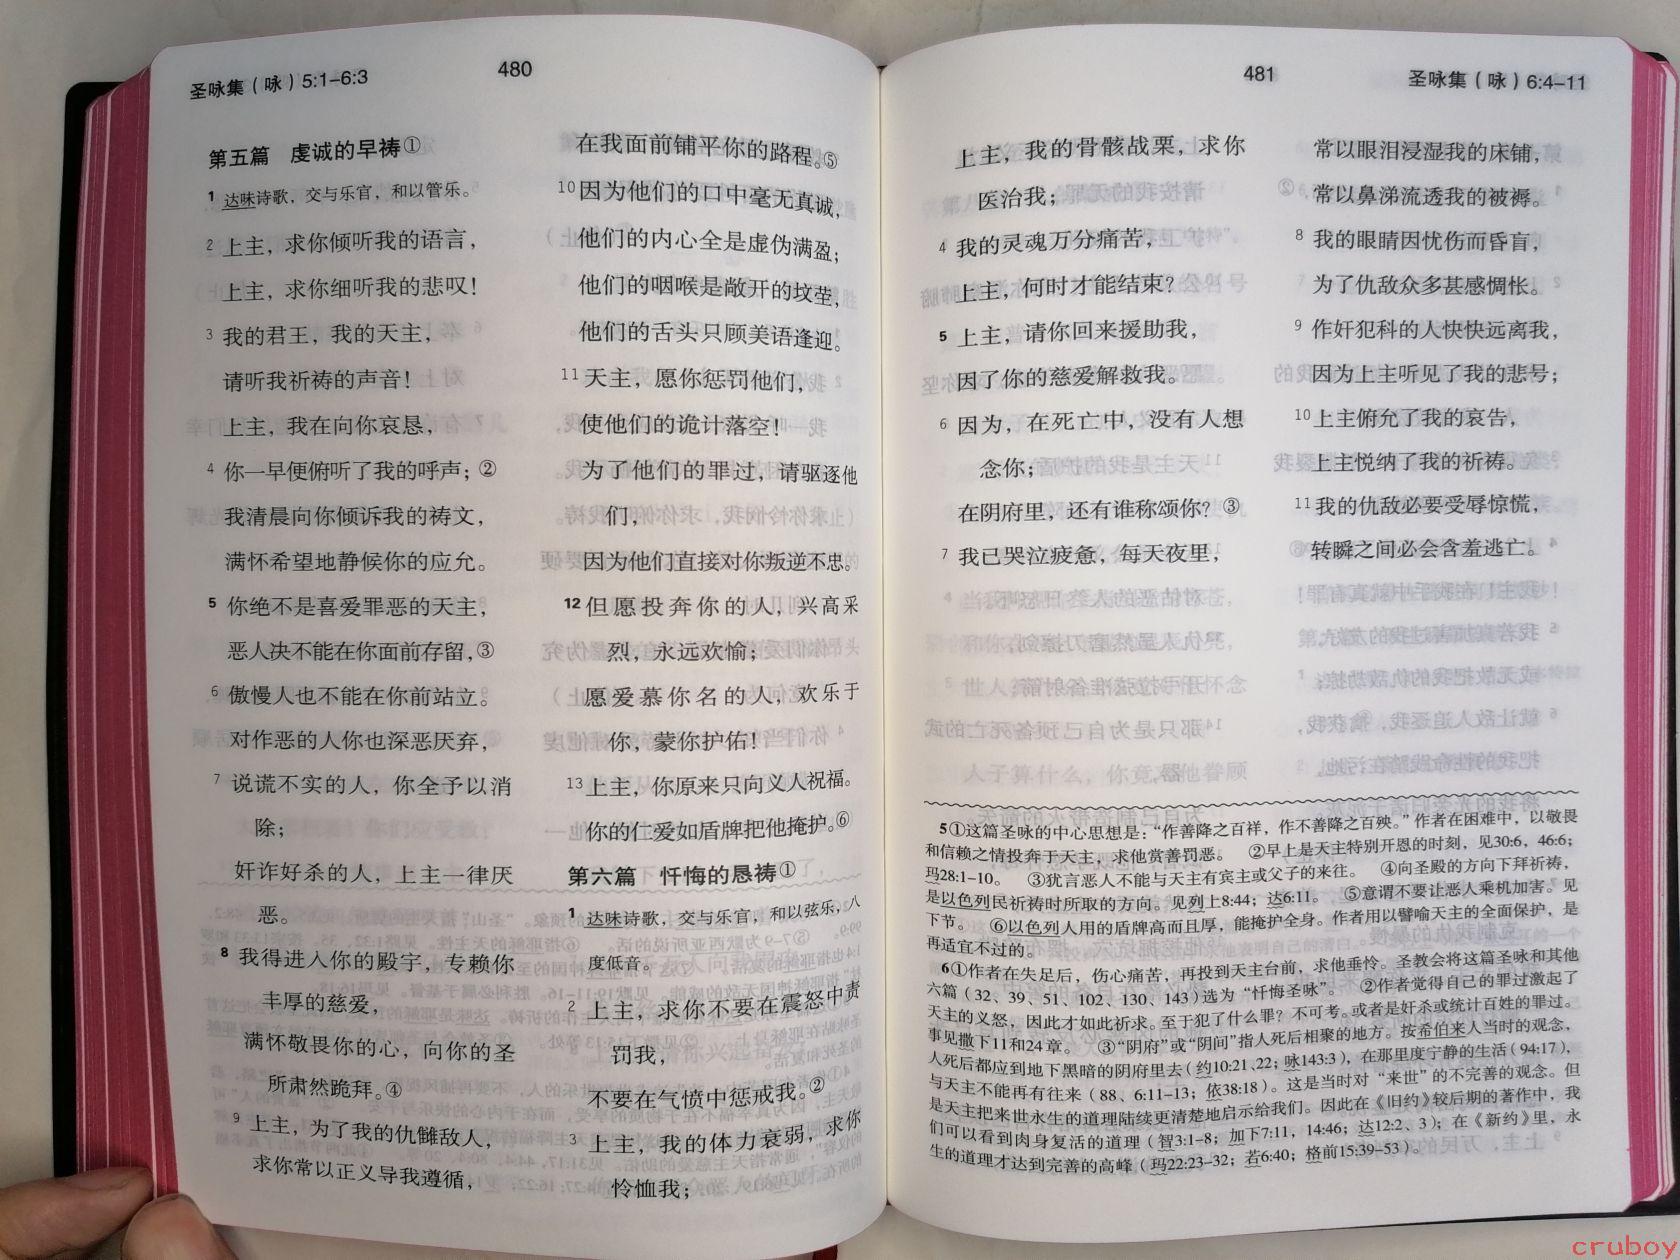 圣咏集（咏）5:1–6:3
480
第五篇　虔诚的早祷①
1 达味诗歌，交与乐官，和以管乐。
2 上主，求你倾听我的语言，
上主，求你细听我的悲叹！
3 我的君王，我的天主，
请听我祈祷的声音！
上主，我在向你哀恳，
4 你一早便俯听了我的呼声；②
我清晨向你倾诉我的祷文，
满怀希望地静候你的应允。
5 你绝不是喜爱罪恶的天主，
恶人决不能在你面前存留，③
6 傲慢人也不能在你前站立。
对作恶的人你也深恶厌弃，
7 说谎不实的人，你全予以消
除；
奸诈好杀的人，上主一律厌
恶。
8 我得进入你的殿宇，专赖你
丰厚的慈爱，
满怀敬畏你的心，向你的圣
所肃然跪拜。④
9 上主，为了我的仇雠敌人，
求你常以正义导我遵循，
在我面前铺平你的路程。⑤
10 因为他们的口中毫无真诚，
他们的内心全是虚伪满盈；
他们的咽喉是敞开的坟茔，
他们的舌头只顾美语逢迎。
11 天主，愿你惩罚他们，
使他们的诡计落空！
为了他们的罪过，请驱逐他
们，
因为他们直接对你叛逆不忠。
12 但愿投奔你的人，兴高采
烈，永远欢愉；
愿爱慕你名的人，欢乐于
你，蒙你护佑！
13 上主，你原来只向义人祝福。
你的仁爱如盾牌把他掩护。⑥
第六篇　忏悔的恳祷①
1 达味诗歌，交与乐官，和以弦乐，八
度低音。
2 上主，求你不要在震怒中责
罚我，
不要在气愤中惩戒我。②
3 上主，我的体力衰弱，求你
怜恤我；
481
圣咏集（咏）6:4–11
上主，我的骨骸战栗，求你
医治我；
4 我的灵魂万分痛苦，
上主，何时才能结束？
5 上主，请你回来援助我，
因了你的慈爱解救我。
6 因为，在死亡中，没有人想
念你；
在阴府里，还有谁称颂你？③
7 我已哭泣疲惫，每天夜里，
常以眼泪浸湿我的床铺，
常以鼻涕流透我的被褥。
8 我的眼睛因忧伤而昏盲，
为了仇敌众多甚感惆怅。
9 作奸犯科的人快快远离我，
因为上主听见了我的悲号；
10 上主俯允了我的哀告，
上主悦纳了我的祈祷。
11 我的仇敌必要受辱惊慌，
转瞬之间必会含羞逃亡。
5①这篇圣咏的中心思想是：“作善降之百祥，作不善降之百殃。”作者在困难中，以敬畏
和信赖之情投奔于天主，求他赏善罚恶。　②早上是天主特别开恩的时刻，见30:6，46:6；
玛28:1–10。　③犹言恶人不能与天主有宾主或父子的来往。　④向圣殿的方向下拜祈祷，
是以色列民祈祷时所取的方向。见列上8:44；达6:11。　⑤意谓不要让恶人乘机加害。见
下节。　⑥以色列人用的盾牌高而且厚，能掩护全身。作者用以譬喻天主的全面保护，是
再适宜不过的。
6①作者在失足后，伤心痛苦，再投到天主台前，求他垂怜。圣教会将这篇圣咏和其他
六篇（32、39、51、102、130、143）选为“忏悔圣咏”。　②作者觉得自己的罪过激起了
天主的义怒，因此才如此祈求。至于犯了什么罪？不可考。或者是奸杀或统计百姓的罪过。
事见撒下11和24章。　③“阴府”或“阴间”指人死后相聚的地方。按希伯来人当时的观念，
人死后都应到地下黑暗的阴府里去（约10:21,22；咏143:3），在那里度宁静的生活（94:17），
与天主不能再有往来（88、6:11–13；依38:18）。这是当时对“来世”的不完善的观念。但
是天主把来世永生的道理陆续更清楚地启示给我们。因此在《旧约》较后期的著作中，我
们可以看到肉身复活的道理（智3:1–8；加下7:11，14:46；达12:2、3）；在《新约》里，永
生的道理才达到完善的高峰（玛22:23–32；若6:40；格前15:39–53）。
cruboy